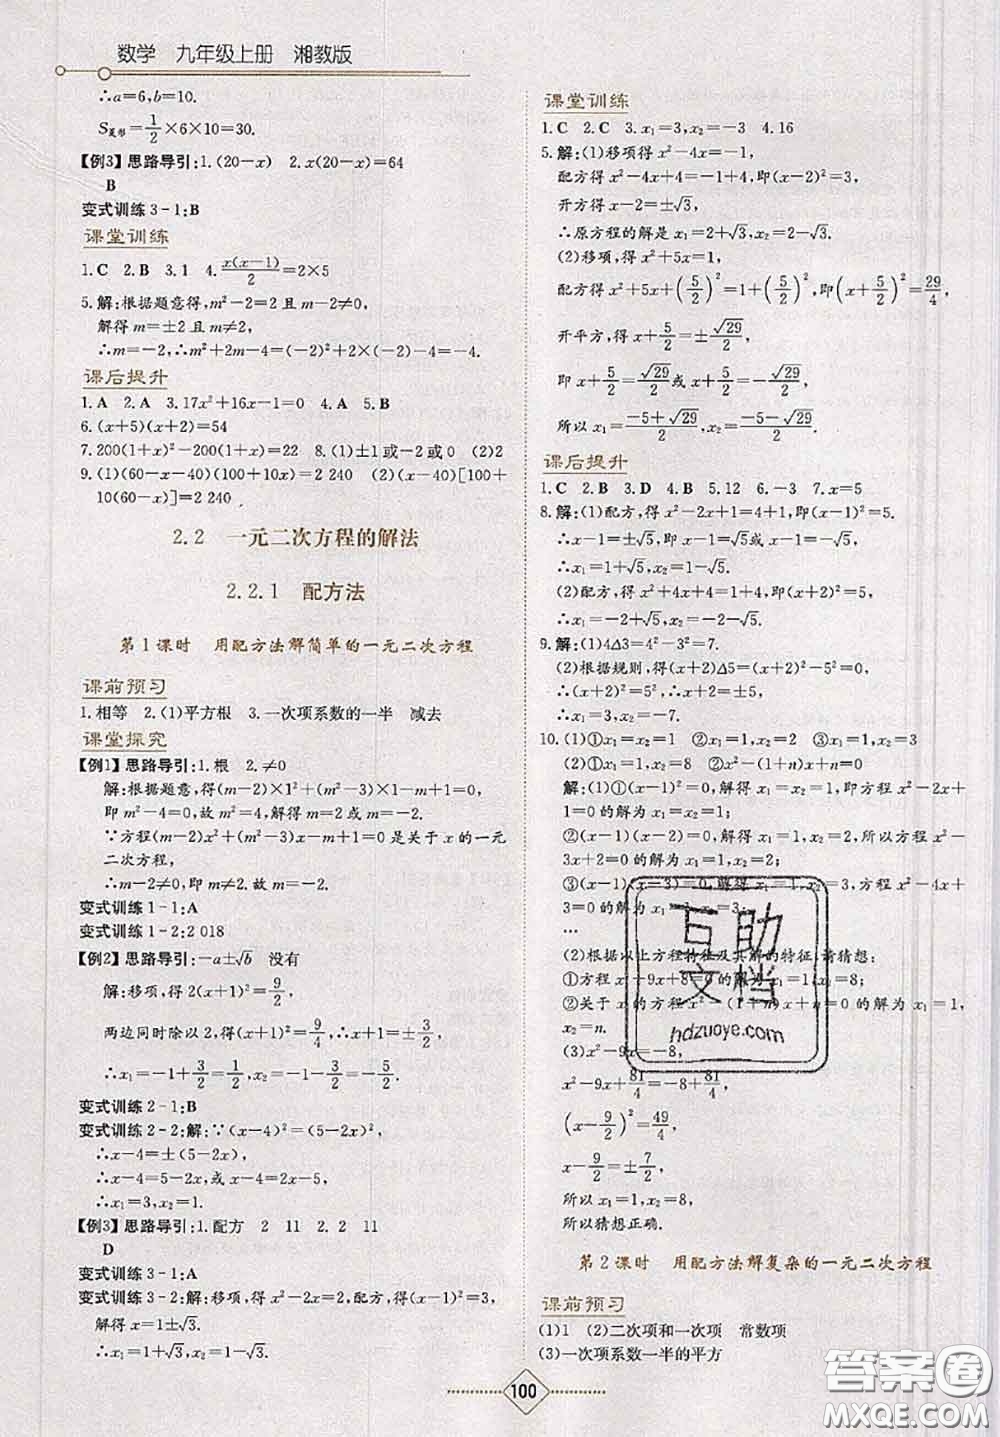 数学 九年级上册 湘教版
∴a=6,b=10.
S菱形=1/2×6×10=30.
【例3】思路导引:1.(20-x) 2.x(20-x)=64
B
变式训练3-1:B
课堂训练
1.C 2.B 3.1 4.x(x-1)/2=2×5
5.解:根据题意得,m²-2=2且m-2≠0,
解得m=±2且m≠2,
∴m=-2,∴m²+2m-4=(-2)²+2×(-2)-4=-4.
课后提升
1.A 2.A 3.17x²+16x-1=0 4.A 5.B
6.(x+5)(x+2)=54
7.200(1+x)²-200(1+x)=22 8.(1)±1或-2或0 (2)2
9.(1)(60-x-40)(100+10x)=2 240 (2)(x-40)[100+
10(60-x)]=2 240
2.2 一元二次方程的解法
2.2.1 配方法
第1课时 用配方法解简单的一元二次方程
课前预习
1.相等 2.(1)平方根 3.一次项系数的一半 减去
课堂探究
【例1】思路导引:1.根 2.≠0
解:根据题意,得(m-2)×1²+(m²-3)×1-m+1=0,
即m²-4=0,故m²=4,解得m=2或m=-2.
∵方程(m-2)x²+(m²-3)x-m+1=0是关于x的一元
二次方程,
∴m-2≠0,即m≠2.故m=-2.
变式训练1-1:A
变式训练1-2:2 018
【例2】思路导引:-a±√b 没有
解:移项,得2(x+1)²=9/2,
两边同时除以2,得(x+1)²=9/4,∴x+1=±3/2,
∴x₁=-1+3/2=1/2,x₂=-1-3/2=-5/2.
变式训练2-1:B
变式训练2-2:解:∵(x-4)²=(5-2x)²,
∴x-4=±(5-2x),
∴x-4=5-2x,或x-4=-5+2x,
∴x₁=3,x₂=1.
【例3】思路导引:1.配方 2 11 2.2 11
D
变式训练3-1:A
变式训练3-2:解:移项,得x²-2x=2,配方,得(x-1)²=3,
解得x=1±√3.
∴x₁=1+√3,x₂=1-√3.
课堂训练
1.C 2.C 3.x₁=3,x₂=-3 4.16
5.解:(1)移项得x²-4x=-1,
配方得x²-4x+4=-1+4,即(x-2)²=3,
开方得x-2=±√3,
∴原方程的解是x₁=2+√3,x₂=2-√3.
(2)移项,得x²+5x=1,
配方得x²+5x+(5/2)²=1+(5/2)²,即(x+5/2)²=29/4,
开平方,得x+5/2=±√29/2,
即x+5/2=√29/2或x+5/2=-√29/2,
所以x₁=(-5+√29)/2,x₂=(-5-√29)/2.
课后提升
1.C 2.B 3.D 4.B 5.12 6.-3 7.x=5
8.解:(1)配方,得x²-2x+1=4+1,即(x-1)²=5.
∴x-1=±√5,即x-1=√5或x-1=-√5.
∴x₁=1+√5,x₂=1-√5.
(2)配方,得x²+4x+4=1+4,即(x+2)²=5,
∴x+2=±√5,
∴x₁=-2+√5,x₂=-2-√5.
9.解:(1)4Δ3=4²-3²=7.
(2)根据规则,得(x+2)²-5²=0,
∴(x+2)²=5²,∴x+2=±5,
∴x₁=3,x₂=-7.
10.(1)①x₁=x₂=1 ②x₁=1,x₂=2 ③x₁=1,x₂=3
(2)①x₁=1,x₂=8 ②x²-(1+n)x+n=0
解:(1)①(x-1)²=0,解得x₁=x₂=1,即方程x²-2x+
1=0的解为x₁=x₂=1,
②(x-1)(x-2)=0,解得x₁=1,x₂=2,所以方程x²-
3x+2=0的解为x₁=1,x₂=2;
③(x-1)(x-3)=0,解得x₁=1,x₂=3,方程x²-4x+
3=0的解为x₁=1,x₂=3;
…
(2)根据以上方程特征及其解的特征,请猜想:
①方程x²-9x+8=0的解为x₁=1,x₂=8;
②关于x的方程x²-(1+n)x+n=0的解为x₁=1,
x₂=n.
(3)x²-9x=-8,
x²-9x+81/4=-8+81/4,
(x-9/2)²=49/4,
x-9/2=±7/2,
所以x₁=1,x₂=8,
所以猜想正确.
第2课时 用配方法解复杂的一元二次方程
课前预习
(1)1 (2)二次项和一次项 常数项
(3)一次项系数一半的平方
100
互助
文档
hdzuoye.com
答案圈
MXQE.COM